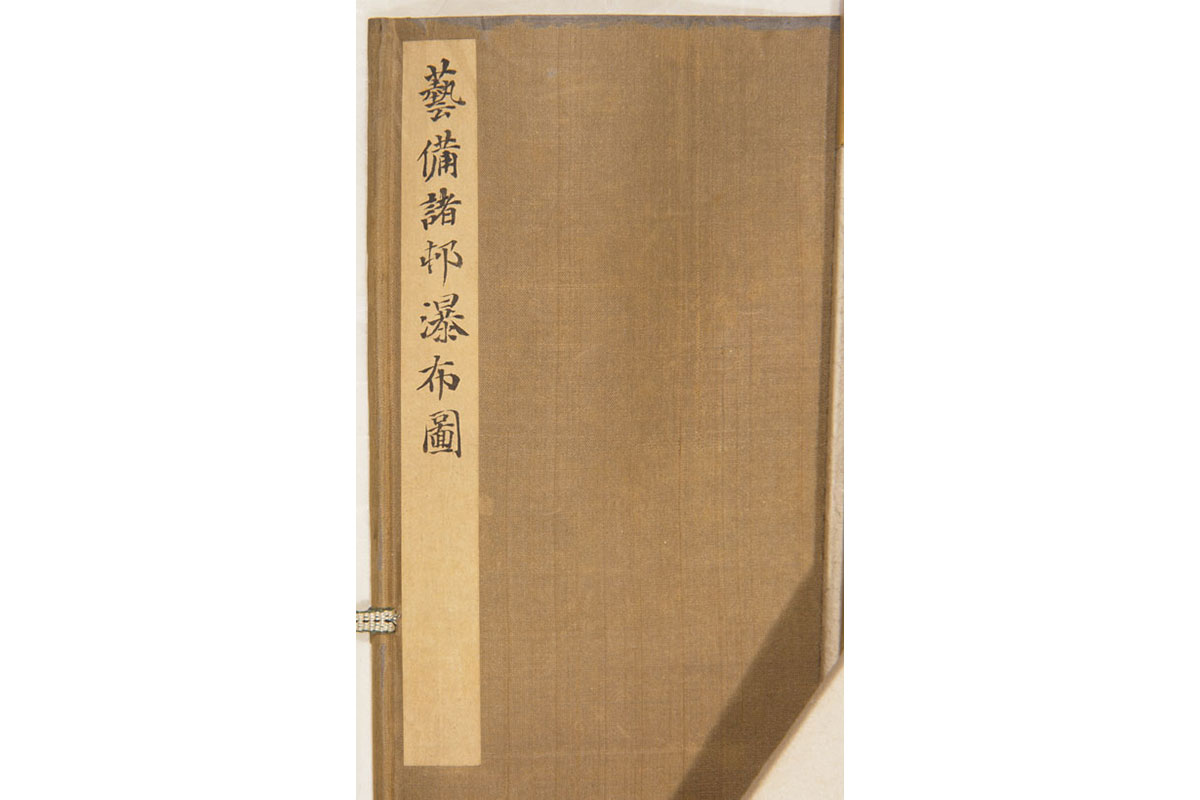 藝備諸邨瀑布圖